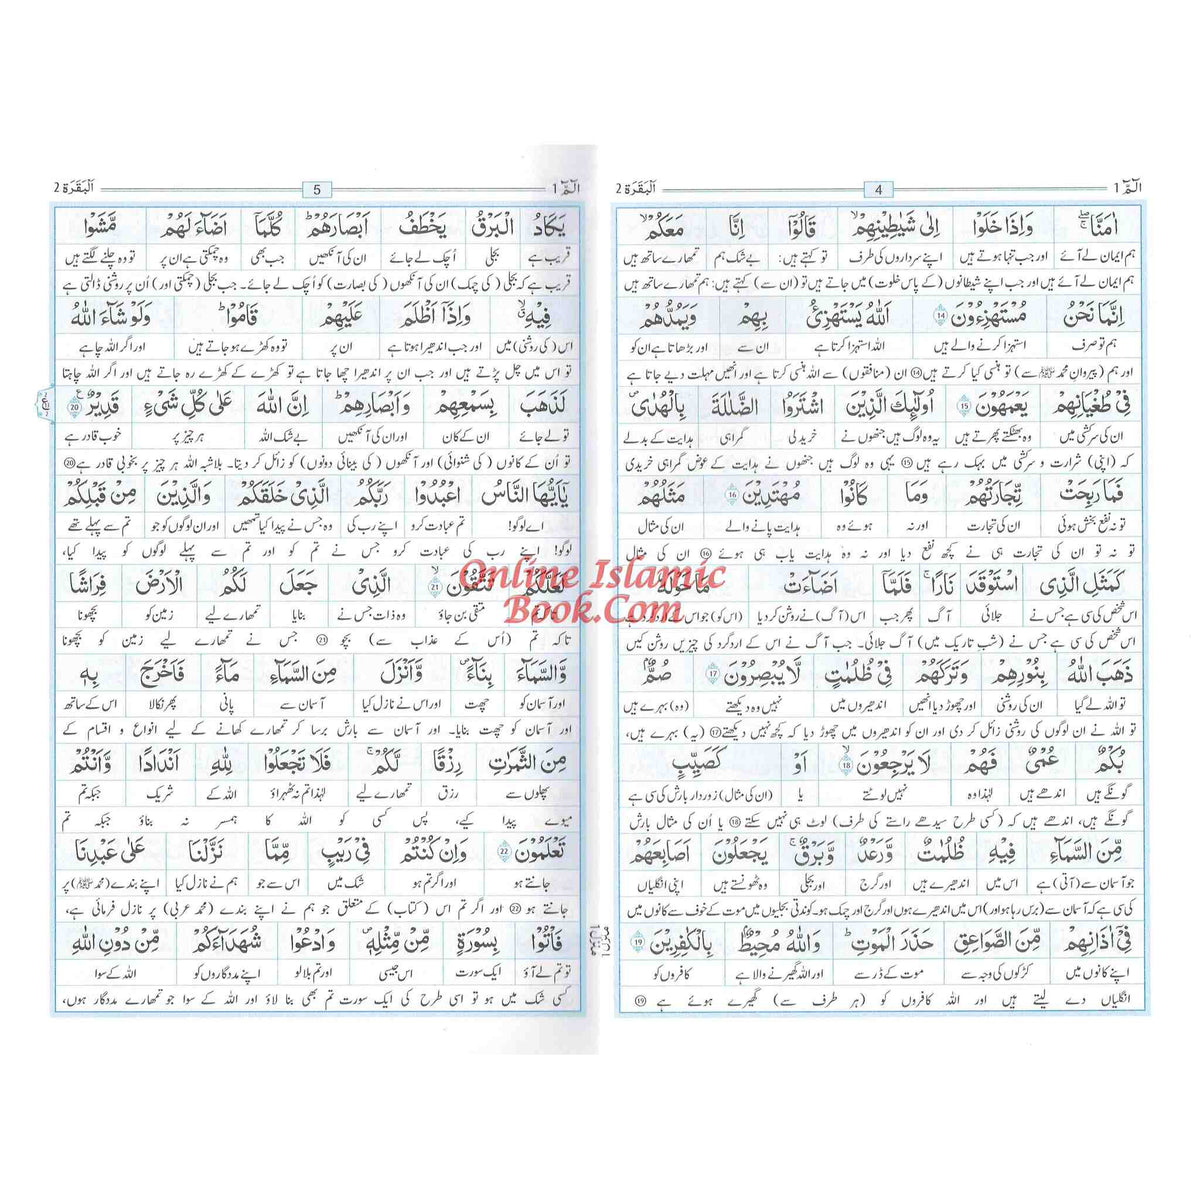 الٓمّٓ 1
4
اَلْبَقَرَة 2
اٰمَنَّا ۖۚ وَاِذَا خَلَوْا اِلٰى شَيٰطِيْنِهِمْ ۙ قَالُوْٓا اِنَّا مَعَكُمْ ۙ
ہم ایمان لے آئے اور جب تنہا ہوتے ہیں اپنے سرداروں کی طرف تو کہتے ہیں: بے شک ہم تمھارے ساتھ ہیں
ہم ایمان لے آئے ہیں اور جب اپنے شیطانوں (کے پاس خلوت) میں جاتے ہیں تو (ان سے) کہتے ہیں: ہم تمھارے ساتھ ہیں
اِنَّمَا نَحْنُ مُسْتَهْزِءُوْنَ 14 اَللّٰهُ يَسْتَهْزِئُ بِهِمْ وَيَمُدُّهُمْ
ہم تو صرف استہزا کرنے والے ہیں اللہ استہزا کرتا ہے ان سے اور بڑھاتا ہے ان کو
اور ہم (پیروانِ محمد ﷺ سے) تو ہنسی کیا کرتے ہیں ⑭ ان (منافقوں) سے اللہ ہنسی کرتا ہے اور انھیں مہلت دیے جاتا ہے
فِيْ طُغْيَانِهِمْ يَعْمَهُوْنَ 15 اُولٰٓئِكَ الَّذِيْنَ اشْتَرَوُا الضَّلٰلَةَ بِالْهُدٰى ۪
ان کی سرکشی میں وہ بھٹکتے پھرتے ہیں یہ وہ لوگ ہیں جنھوں نے خرید لی گمراہی ہدایت کے بدلے
کہ (اپنی) شرارت و سرکشی میں بہک رہے ہیں ⑮ یہی وہ لوگ ہیں جنھوں نے ہدایت کے عوض گمراہی خریدی
فَمَا رَبِحَتْ تِّجَارَتُهُمْ وَمَا كَانُوْا مُهْتَدِيْنَ 16 مَثَلُهُمْ
تو نہ نفع بخش ہوئی ان کی تجارت اور نہ ہوئے وہ ہدایت پانے والے ان کی مثال
تو نہ تو ان کی تجارت ہی نے کچھ نفع دیا اور نہ وہ ہدایت یاب ہی ہوئے ⑯ ان کی مثال
كَمَثَلِ الَّذِي اسْتَوْقَدَ نَارًا ۚ فَلَمَّآ اَضَآءَتْ مَا حَوْلَهٗ
اس شخص کی سی ہے جس نے جلائی آگ پھر جب اس (آگ) نے روشن کر دیا (اس کو) جو اس
اس شخص کی سی ہے جس نے (شبِ تاریک میں) آگ جلائی۔ جب آگ نے اس کے اردگرد کی چیزیں روشن کیں
ذَهَبَ اللّٰهُ بِنُوْرِهِمْ وَتَرَكَهُمْ فِيْ ظُلُمٰتٍ لَّا يُبْصِرُوْنَ 17 صُمٌّۢ
تو اللہ لے گیا ان کی روشنی اور چھوڑ دیا انھیں اندھیروں میں نہیں وہ دیکھتے (وہ) بہرے ہیں
تو اللہ نے ان لوگوں کی روشنی زائل کر دی اور ان کو اندھیروں میں چھوڑ دیا کہ کچھ نہیں دیکھتے ⑰ (یہ) بہرے ہیں،
بُكْمٌ عُمْيٌ فَهُمْ لَا يَرْجِعُوْنَ ۙ 18 اَوْ كَصَيِّبٍ
گونگے ہیں اندھے ہیں لہٰذا وہ نہیں لوٹتے یا (ان کی مثال) زوردار بارش کی سی ہے
گونگے ہیں، اندھے ہیں کہ (کسی طرح سیدھے راستے کی طرف) لوٹ ہی نہیں سکتے ⑱ یا اُن کی مثال بارش
مِّنَ السَّمَآءِ فِيْهِ ظُلُمٰتٌ وَّرَعْدٌ وَّبَرْقٌ ۚ يَجْعَلُوْنَ اَصَابِعَهُمْ
جو آسمان سے (آتی) ہے اس میں اندھیرے ہیں اور گرج اور بجلی وہ ٹھونستے ہیں اپنی انگلیاں
کی سی ہے کہ آسمان سے (برس رہا ہو اور) اس میں اندھیرے ہوں اور گرج اور چمک ہو۔ کوندتی بجلیوں میں موت کے خوف سے کانوں میں
فِيْٓ اٰذَانِهِمْ مِّنَ الصَّوَاعِقِ حَذَرَ الْمَوْتِ ؕ وَاللّٰهُ مُحِيْطٌۢ بِالْكٰفِرِيْنَ 19
اپنے کانوں میں کڑکوں کی وجہ سے موت کے ڈر سے اور اللہ گھیرنے والا ہے کافروں کو
انگلیاں دے لیتے ہیں اور اللہ کافروں کو (ہر طرف سے) گھیرے ہوئے ہے ⑲
الٓمّٓ 1
5
اَلْبَقَرَة 2
يَكَادُ الْبَرْقُ يَخْطَفُ اَبْصَارَهُمْ ؕ كُلَّمَآ اَضَآءَ لَهُمْ مَّشَوْا
قریب ہے بجلی اُچک لے جائے ان کی آنکھیں جب بھی وہ چمکتی ہے ان پر تو وہ چلنے لگتے ہیں
قریب ہے کہ بجلی (کی چمک) ان کی آنکھوں (کی بصارت) کو اُچک لے جائے۔ جب بجلی (چمکتی اور) اُن پر روشنی ڈالتی ہے
فِيْهِ ۙ وَاِذَآ اَظْلَمَ عَلَيْهِمْ قَامُوْا ؕ وَلَوْ شَآءَ اللّٰهُ
اس (کی روشنی) میں اور جب اندھیرا ہوتا ہے ان پر تو وہ کھڑے ہو جاتے ہیں اور اگر اللہ چاہے
تو اس میں چل پڑتے ہیں اور جب ان پر اندھیرا چھا جاتا ہے تو کھڑے کے کھڑے رہ جاتے ہیں اور اگر اللہ چاہتا
لَذَهَبَ بِسَمْعِهِمْ وَاَبْصَارِهِمْ ؕ اِنَّ اللّٰهَ عَلٰى كُلِّ شَيْءٍ قَدِيْرٌ 20
تو لے جائے ان کے کان اور ان کی آنکھیں بے شک اللہ ہر چیز پر خوب قادر ہے
تو اُن کے کانوں (کی شنوائی) اور آنکھوں (کی بینائی دونوں) کو زائل کر دیتا۔ بلاشبہ اللہ ہر چیز پر بخوبی قادر ہے ⑳
يٰٓاَيُّهَا النَّاسُ اعْبُدُوْا رَبَّكُمُ الَّذِيْ خَلَقَكُمْ وَالَّذِيْنَ مِنْ قَبْلِكُمْ
اے لوگو! تم عبادت کرو اپنے رب کی وہ جس نے پیدا کیا تمھیں اور ان لوگوں کو جو تم سے پہلے تھے
لوگو! اپنے رب کی عبادت کرو جس نے تم کو اور تم سے پہلے لوگوں کو پیدا کیا،
لَعَلَّكُمْ تَتَّقُوْنَ ۙ 21 الَّذِيْ جَعَلَ لَكُمُ الْاَرْضَ فِرَاشًا
متقی بن جاؤ وہ ذات جس نے بنایا تمھارے لیے زمین کو بچھونا
تاکہ تم (اُس کے عذاب سے) بچو ㉑ جس نے تمھارے لیے زمین کو بچھونا
وَّالسَّمَآءَ بِنَآءً ۪ وَّاَنْزَلَ مِنَ السَّمَآءِ مَآءً فَاَخْرَجَ بِهٖ
اور آسمان کو چھت اور اس نے نازل کیا آسمان سے پانی پھر نکالا اس کے ساتھ
اور آسمان کو چھت بنایا۔ اور آسمان سے بارش برسا کر تمھارے کھانے کے لیے انواع و اقسام کے
مِنَ الثَّمَرٰتِ رِزْقًا لَّكُمْ ۚ فَلَا تَجْعَلُوْا لِلّٰهِ اَنْدَادًا وَّاَنْتُمْ
پھلوں سے رزق تمھارے لیے لہٰذا تم نہ ٹھہراؤ اللہ کے شریک جبکہ تم
میوے پیدا کیے، پس کسی کو اللہ کا ہمسر نہ بناؤ جبکہ تم
تَعْلَمُوْنَ 22 وَاِنْ كُنْتُمْ فِيْ رَيْبٍ مِّمَّا نَزَّلْنَا عَلٰى عَبْدِنَا
جانتے ہو اور اگر تم ہو شک میں اس سے جو ہم نے نازل کیا اپنے بندے (محمد ﷺ) پر
جانتے ہو ㉒ اور اگر تم اس (کتاب) کے متعلق جو ہم نے اپنے بندے (محمد عربی) پر نازل فرمائی ہے،
فَاْتُوْا بِسُوْرَةٍ مِّنْ مِّثْلِهٖ ۪ وَادْعُوْا شُهَدَآءَكُمْ مِّنْ دُوْنِ اللّٰهِ
تو تم لے آؤ ایک سورت اس جیسی اور تم بلا لو اپنے مددگاروں کو اللہ کے سوا
کسی شک میں ہو تو اسی طرح کی ایک سورت تم بھی بنا لاؤ اور اللہ کے سوا جو تمھارے مددگار ہوں،
منزل 1
Online Islamic
Book.Com